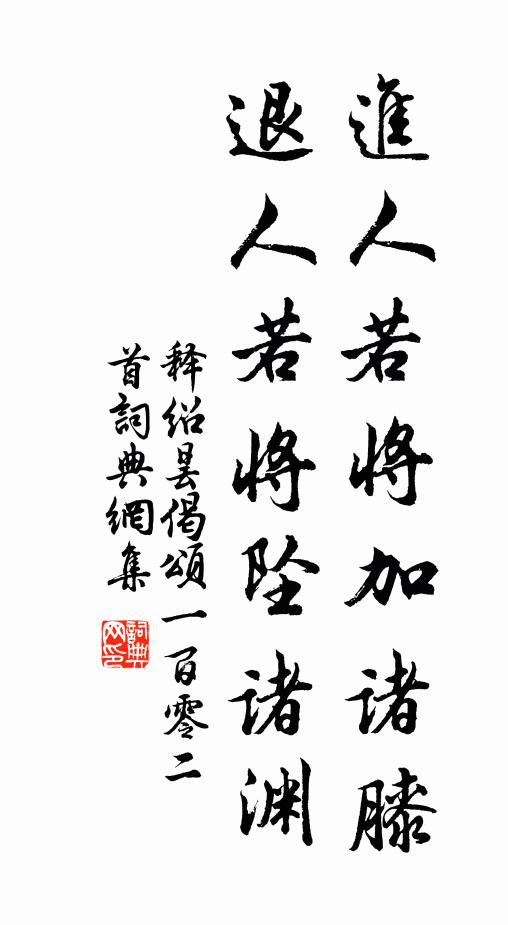 進人若將加諸膝
退人若將坠諸渊
释绍昙偈頌一百零二
首詞典網集
詞典网印